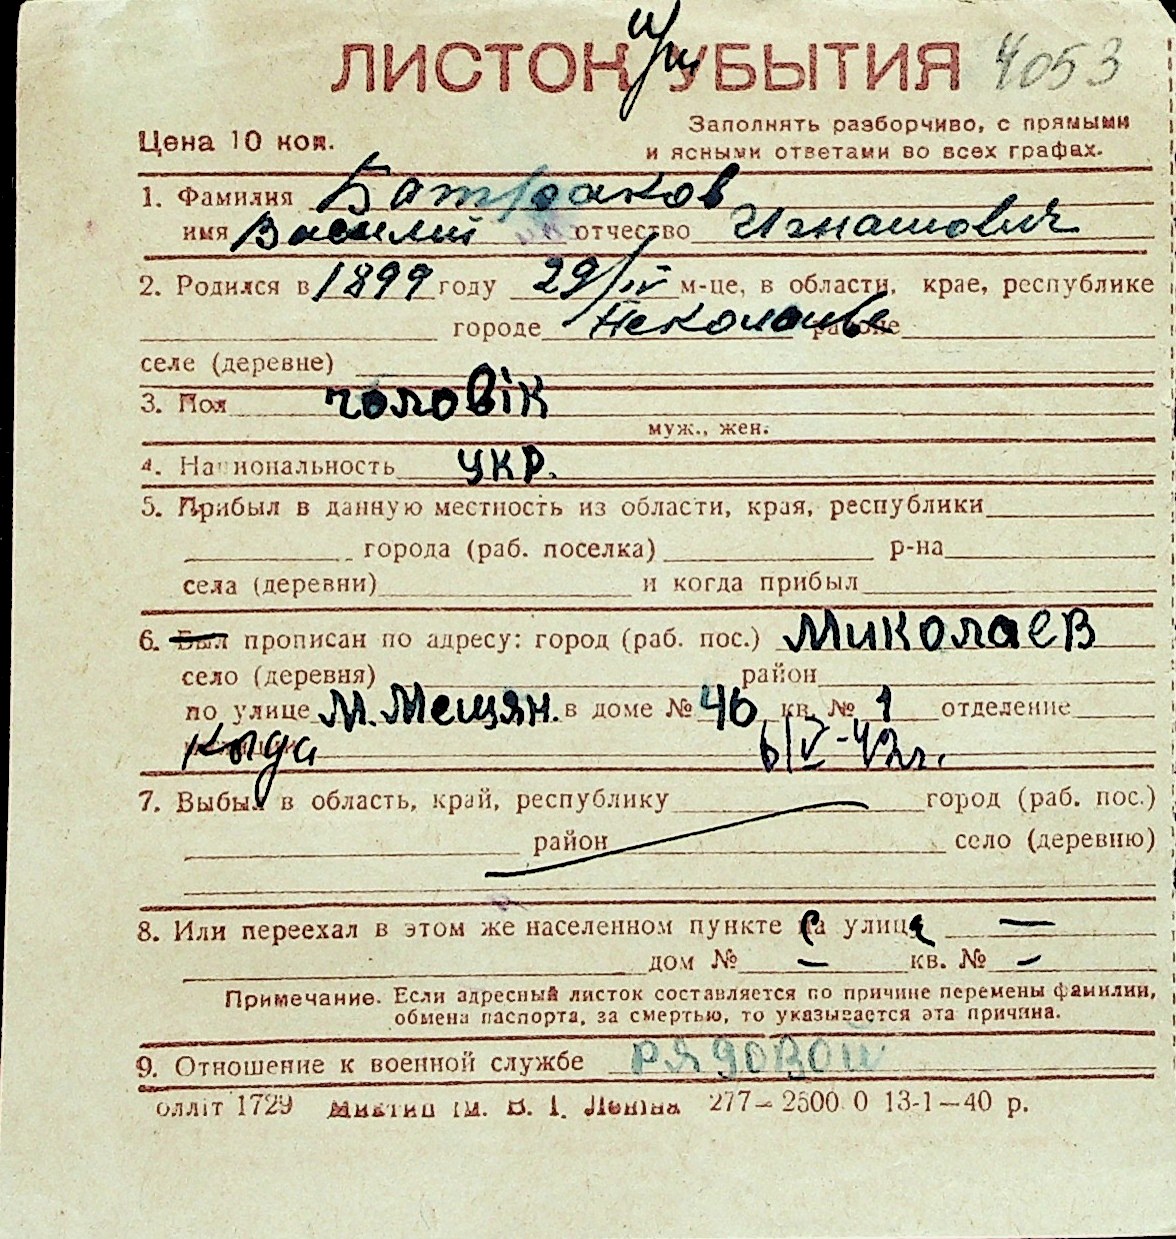 ЛИСТОК при УБЫТИЯ 4053
Цена 10 коп.
Заполнять разборчиво, с прямыми
и ясными ответами во всех графах.
1. Фамилия Батраков
имя Василий отчество Игнатович
2. Родился в 1899 году 29/IV м-це, в области, крае, республике
городе районе
селе (деревне)
3. Пол чоловік
муж., жен.
4. Национальность укр.
5. Прибыл в данную местность из области, края, республики
города (раб. поселка) р-на
села (деревни) и когда прибыл
6. Был прописан по адресу: город (раб. пос.) Миколаев
село (деревня) район
по улице М. Мещян. в доме № 46 кв. № 1 отделение
Когда 6/V-42г.
7. Выбыл в область, край, республику город (раб. пос.)
район село (деревню)
8. Или переехал в этом же населенном пункте с улицы —
дом № — кв. № —
Примечание. Если адресный листок составляется по причине перемены фамилии,
обмена паспорта, за смертью, то указывается эта причина.
9. Отношение к военной службе рядовой
олліт 1729 им. В. І. Леніна 277—2500 0 13-1—40 р.